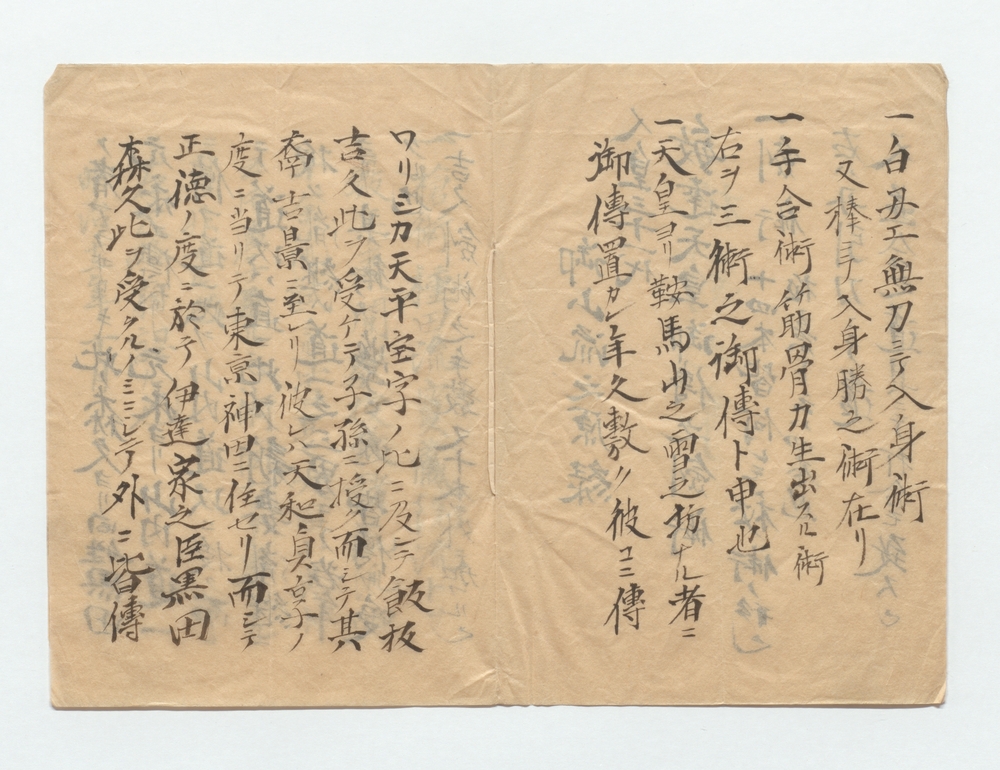 一白刄エ無刀ニテ入身術
又棒ニテ入身勝之術在リ
一手合術筋骨力生出スル術
右ヲ三術之御傳ト申也
一天皇ヨリ鞍馬山之雪之坊ナル者ニ
御傳置カレ年久敷ク彼コニ傳
ワリシカ天平宝字ノ比ニ及ンテ飯坂
吉久此ヲ受ケテ子孫ニ授ク而シテ其
裔吉景ニ至レリ彼レハ天和貞享ノ
度ニ当リテ東京神田ニ住セリ而シテ
正德ノ度ニ於テ伊達家之臣黒田
森久此ヲ受クルノミニシテ外ニ皆傳